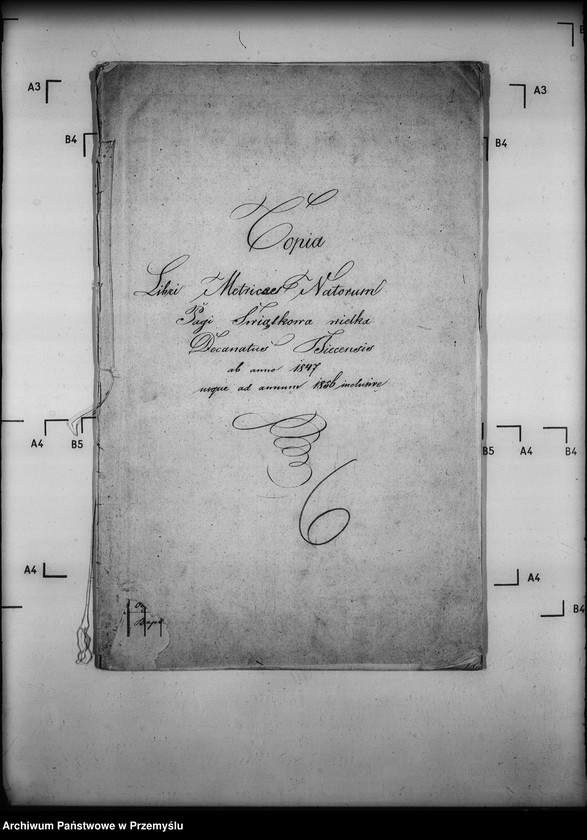 Copia
Libri Metrices Natorum
Pagi Swiątkowa wielka
Decanatus Biecensis
ab anno 1847
usque ad annum 1856 inclusive
6
A3
A3
B4
B4
A4
B5
B5
A4
B4
A4
A4
B4
Archiwum Państwowe w Przemyślu